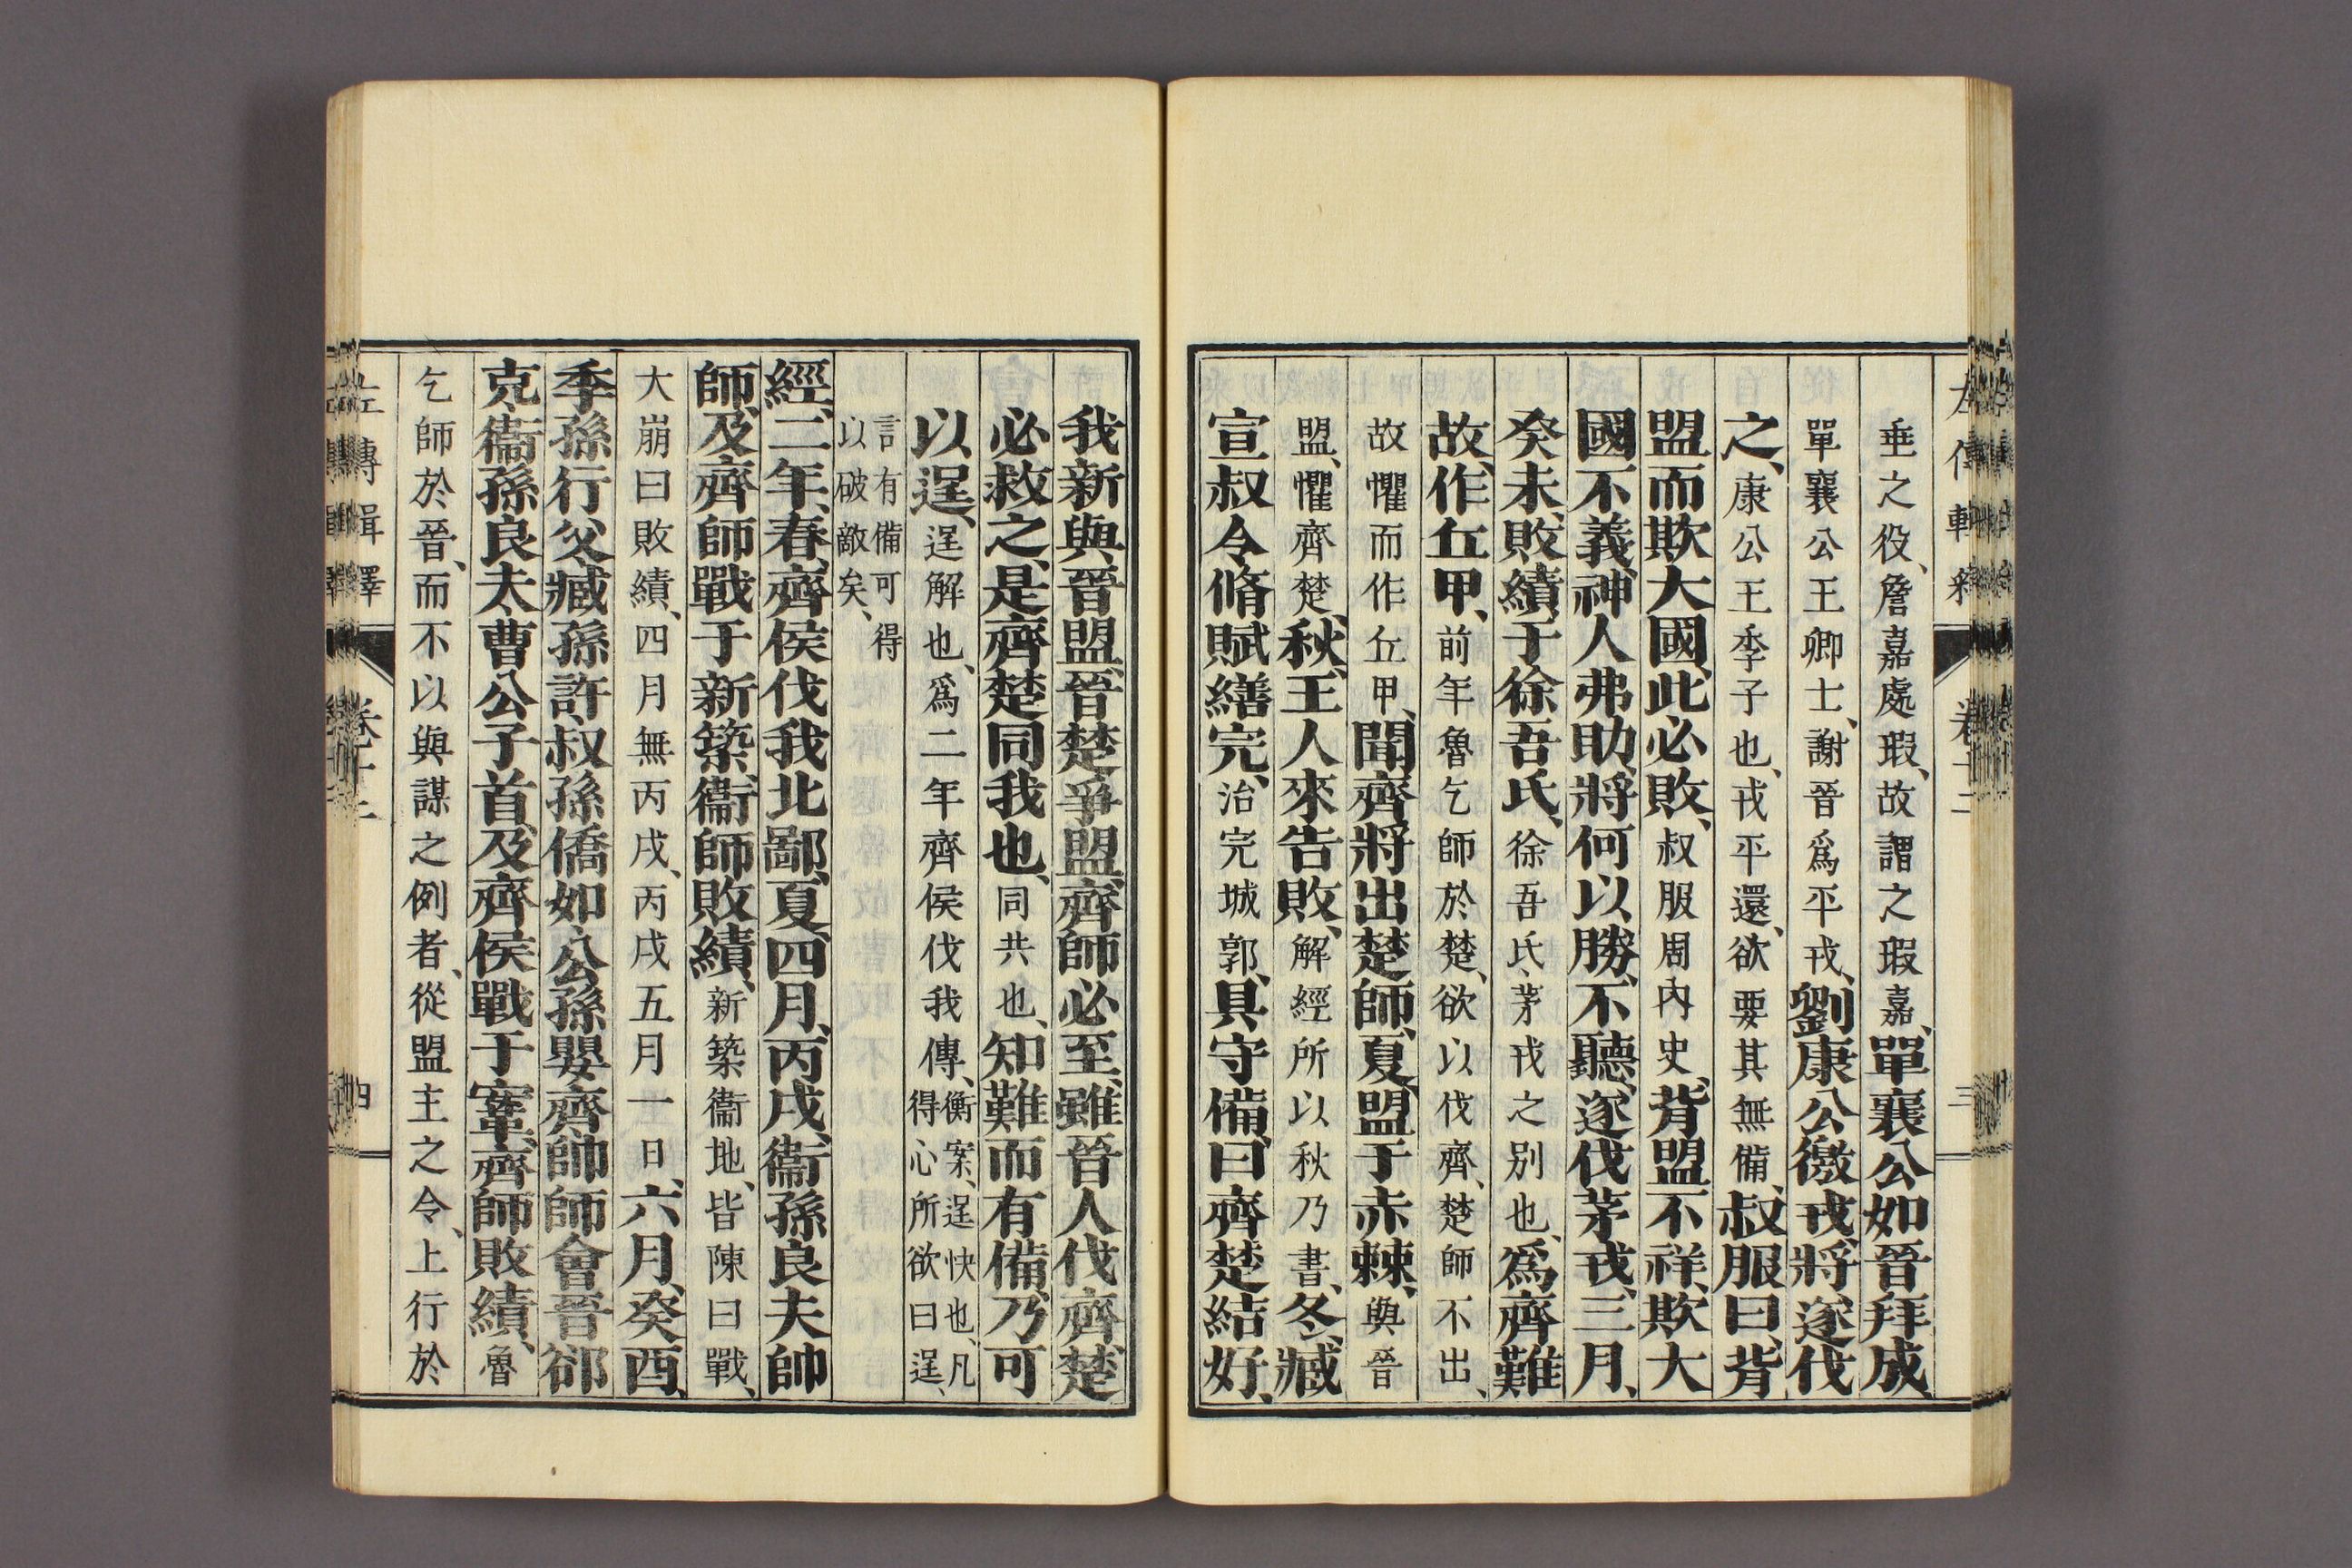 垂之役、詹嘉處瑕、故謂之瑕嘉、單襄公如晉拜成
單襄公王卿士、謝晉爲平戎、劉康公徼戎、將遂伐
之、康公王季子也、戎平還、欲要其無備、叔服曰、背
盟而欺大國、此必敗、叔服周內史、背盟不祥、欺大
國不義、神人弗助、將何以勝、不聽、遂伐茅戎、三月、
癸未、敗績于徐吾氏、徐吾氏、茅戎之別也、爲齊難
故、作丘甲、前年魯乞師於楚、欲以伐齊、楚師不出、
故懼而作丘甲、聞齊將出楚師、夏、盟于赤棘、與晉
盟、懼齊楚、秋、王人來告敗、解經所以秋乃書、冬、臧
宣叔令脩賦繕完、治完城郭、具守備、曰、齊楚結好、
我新與晉盟、晉楚爭盟、齊師必至、雖晉人伐齊、楚
必救之、是齊楚同我也、同共也、知難而有備、乃可
以逞、逞解也、爲二年齊侯伐我傳、衡案、逞快也、凡得心所欲曰逞、
言有備可得以破敵矣、
經、二年、春、齊侯伐我北鄙、夏、四月、丙戌、衞孫良夫帥
師、及齊師戰于新築、衞師敗績、新築衞地、皆陳曰戰、
大崩曰敗績、四月無丙戌、丙戌五月一日、六月、癸酉、
季孫行父、臧孫許、叔孫僑如、公孫嬰齊、帥師會晉郤
克、衞孫良夫、曹公子首、及齊侯戰于鞌、齊師敗績、魯
乞師於晉、而不以與謀之例者、從盟主之令、上行於
左傳輯釋 卷十二 四